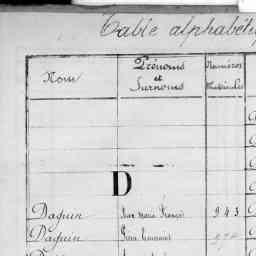 Table alphabétiq
Nom
Prénoms
et
Surnoms
Numéros
Matricules
D
Daguin Jean Marie François 943
Daguin Pierre